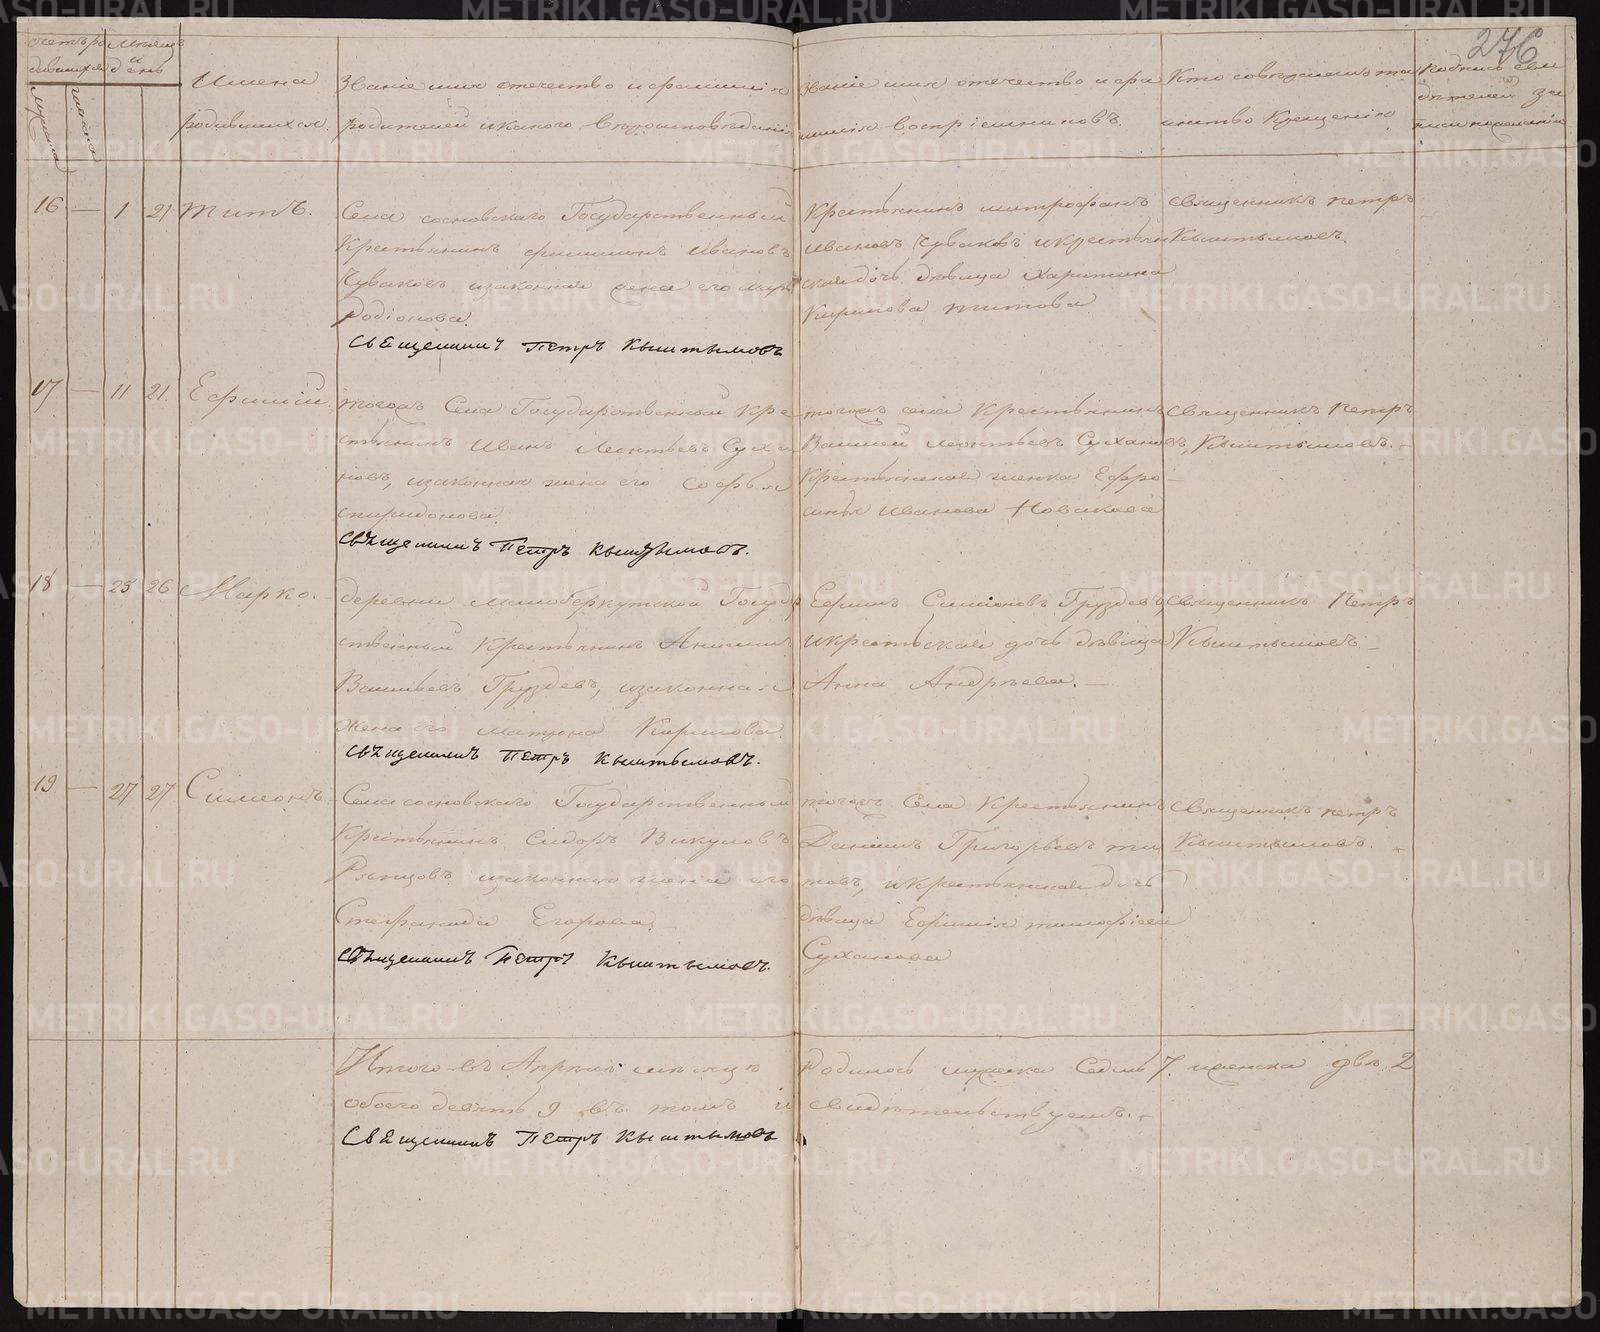 276
Счетъ ро Мѣсяцъ
дившихся и день
мужска женска
Имена
родившихся.
Званіе имя отечество и фамилія
родителей и какого вѣроисповѣданія
Званіе имя отечество и фа
милія воспріемниковъ.
Кто совершалъ та
инство Крещенія
16 — 1 21 Титъ.
Села сосновскаго Государственный
Крестьянинъ филимонъ Ивановъ
Чуваковъ изаконная жена его
Родіонова.
Священникъ Петръ Кыштымовъ
Крестьянинъ митрофанъ
Ивановъ Чуваковъ икрестьян
ская дочь дѣвица Харитина
Кирилова титова
Священникъ петръ
Кыштымовъ.
17 — 11 21. Ефимій
тогожъ Села Государственный Кре
стьянинъ Иванъ Леонтьевъ Суха
новъ, изаконная жена его Софья
спиридонова.
Священникъ Петръ Кыштымовъ.
тогожъ села Крестьянинъ
Василей Леонтьевъ Сухановъ,
Крестьянская женка Ефро
синья Иванова Новикова
Священникъ Петръ
Кыштымовъ. —
18 — 25 26 Марко.
деревни малоберкутской Госудр
ственный Крестьянинъ Анисимъ
Васильевъ Груздевъ, изаконная
жена его матрона Кирилова
Священникъ Петръ Кыштымовъ.
Ефимъ Симіоновъ Груздевъ,
икрестьская дочь дѣвица
Анна Андрѣева. —
Священникъ Петръ
Кыштымовъ —
19 — 27 27 Симіонъ
Села сосновскаго Государственный
Крестьянинъ Сидоръ Викуловъ
изаконная жена его
Стефанида Егорова. —
Священникъ Петръ Кыштымовъ.
тогожъ Села Крестьянинъ
Даніилъ Григорьевъ ти
товъ, икрестьянская дочь
дѣвица Ефимія тимофіева
Суханова
Священникъ петръ
Кыштымовъ. —
Итого въ Апрѣлѣ мѣсяцѣ Родилось мужска Седмь 7. женска двѣ. 2
обоего девять 9 въ томъ и свидѣтельствуемъ. —
Священникъ Петръ Кыштымовъ
METRIKI.GASO-URAL.RU